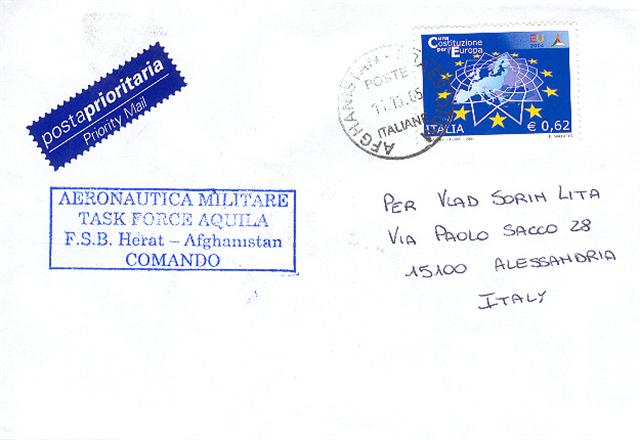 postaprioritaria
Priority Mail
AFGHANISTAN
POSTE
ITALIANE
Una
Costituzione
per l'Europa
EU
2004
ITALIA
€ 0,62
AERONAUTICA MILITARE
TASK FORCE AQUILA
F.S.B. Herat – Afghanistan
COMANDO
PER VLAD SORIN LITA
VIA PAOLO SACCO 28
15100 ALESSANDRIA
ITALY